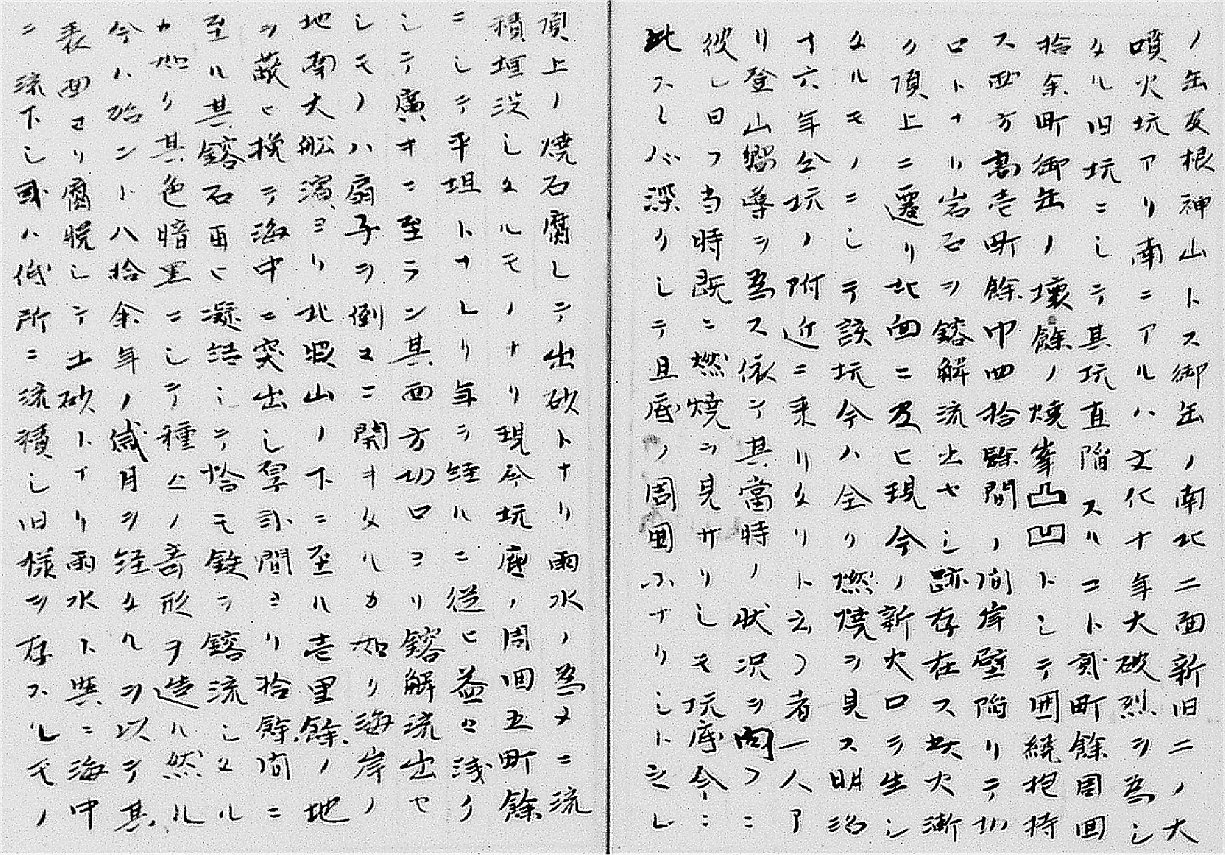 ノ缶友根神山トス御缶ノ南北二面新旧二ノ大
噴火坑アリ南ニアルハ文化十年大破烈ヲ為シ
タル旧坑ニシテ其坑直陥スルコト貳町餘周回
拾余町御缶ノ壊餘ノ燒峯凸凹トシテ囲繞抱持
ス西方高壱町餘巾四拾餘間ノ間岸壁陥リテ切
ロトナリ岩石ヲ鎔解流出セシ跡存在ス此火漸
ク頂上ニ遷リ北面ニ及ヒ現今ノ新火口ヲ生シ
タルモノニシテ該坑今ハ全ク燃燒ヲ見ス明治
十六年全坑ノ附近ニ来リタリト云フ者一人ア
リ登山嚮導ヲ為ス依テ其當時ノ状況ヲ問フニ
彼レ曰フ当時既ニ燃焼ヲ見サリシモ坑底今ニ
此スレバ深クシテ且底ノ周囲小ナリシト云レ
頂上ノ焼石腐レテ出砂トナリ雨水ノ為メニ流
積埋没シタルモノナリ現今坑底ノ周回五町餘
ニシテ平坦トナレリ年ヲ経ルニ従ヒ益々浅ク
シテ廣オニ至ラン其西方切口ヨリ鎔解流出セ
シモノハ扇子ヲ倒マニ開キタルカ如ク海岸ノ
地南大舩濱ヨリ北 山ノ下ニ至ル壱里餘ノ地
ヲ蔽ヒ挽テ海中ニ突出シ 間ヨリ拾餘間ニ
至ル其鎔石再ヒ凝結シテ恰モ鉄ヲ鎔流シタル
カ如ク其色暗黒ニシテ種々ノ奇形ヲ造ル然ル
今ハ殆ント八拾余年ノ歳月ヲ経タルヲ以テ其
表面ヨリ腐脱シテ土砂トナリ雨水ト與ニ海中
ニ流下シ或ハ低所ニ流積シ旧様ヲ存スルモノ